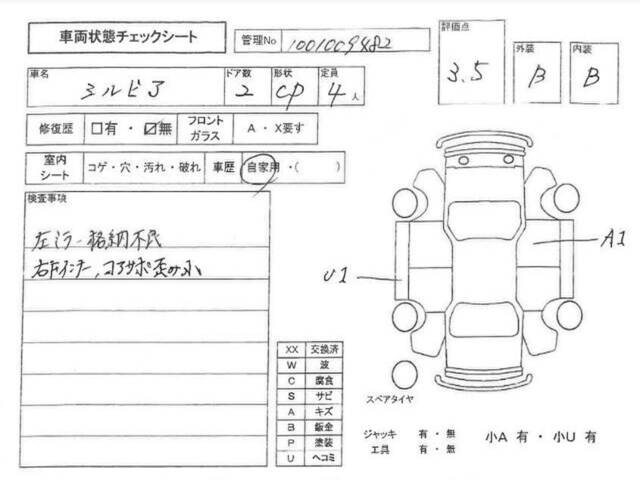 車両状態チェックシート
管理No 1001009482
評価点 3.5
外装 B
内装 B
車名 シルビア
ドア数 2
形状 CP
定員 4人
修復歴 □有・☑無
フロントガラス A・X要す
室内シート コゲ・穴・汚れ・破れ
車歴 自家用・( )
検査事項
左ミラー格納不良
右Fインナー,コアサポ歪み小
A1
U1
XX 交換済
W 波
C 腐食
S サビ
A キズ
B 鈑金
P 塗装
U ヘコミ
スペアタイヤ
ジャッキ 有・無
工具 有・無
小A 有・小U 有